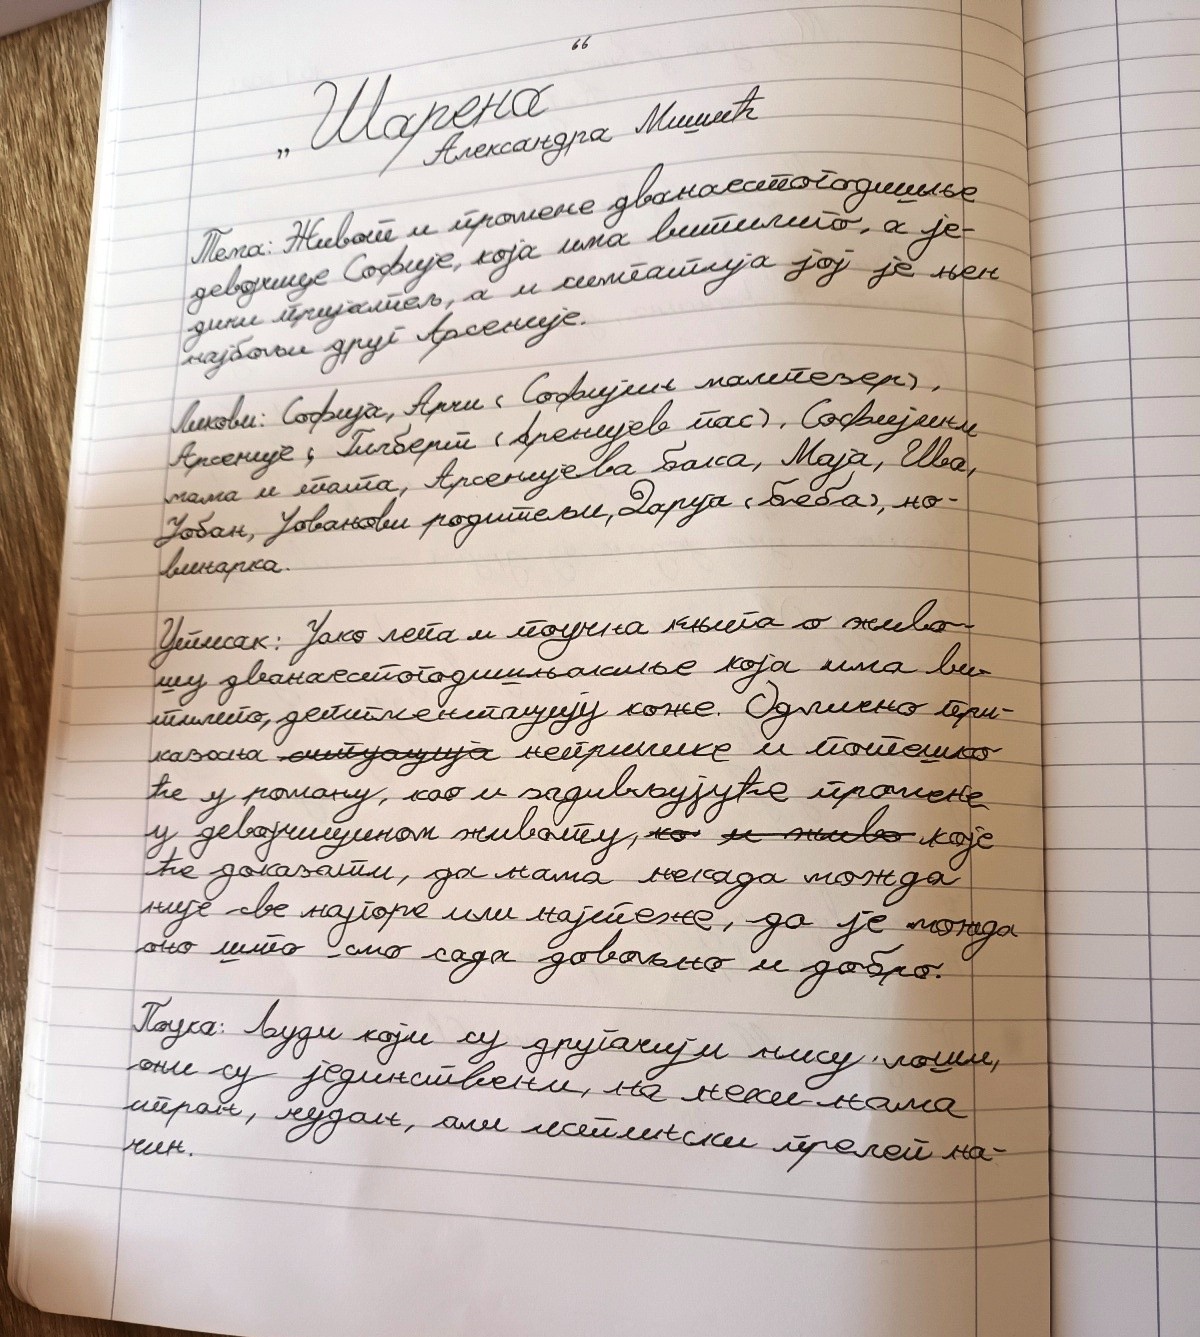 „Шарена“
Александра Мишић
Тема: Живот и промене дванаестогодишње
девојчице Софије, која има витилиго, а је-
дини пријатељ, а и симпатија јој је њен
најбољи друг Арсеније.
Ликови: Софија, Арчи (Софијин малтезер),
Арсеније, Гилберт (Аренијев пас), Софијини
мама и тата, Арсенијева бака, Маја, Ива,
Јован, Јованови родитељи, Дарија (беба), но-
винарка.
Утисак: Јако лепа и поучна књига о живо-
ту дванаестогодишњакиње која има ви-
тилиго, депигментацију коже. Одлично при-
казана ситуација неприлике и потешко
ће у роману, као и задивљујуће промене
у девојчицином животу, ко и живо које
ће доказати, да нама некада можда
није све најгоре или најтеже, да је можда
оно што смо сада довољно и добро.
Поука: Људи који су другачији нису лоши,
они су јединствени, на неки нама
стран, чудан, али истински прелеп на-
чин.